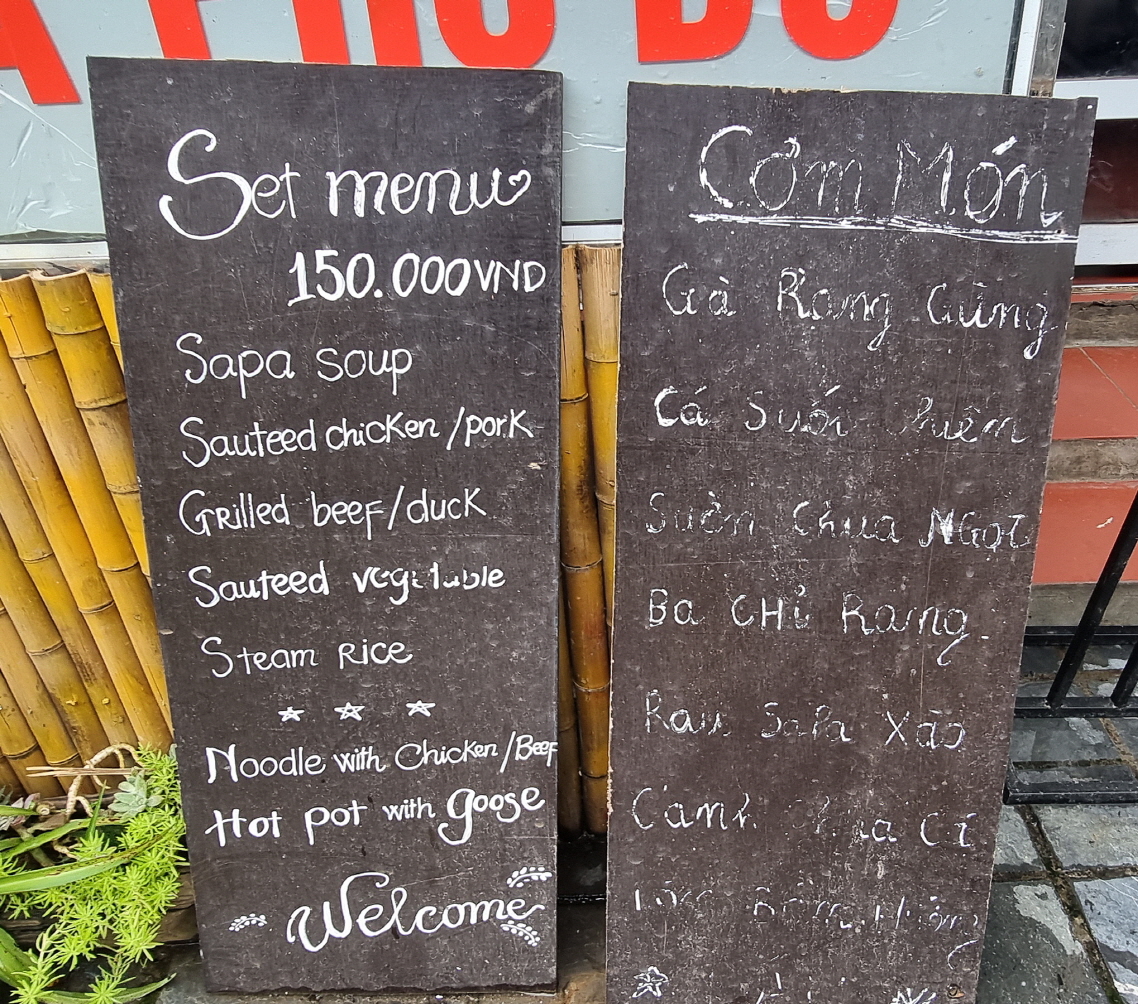 PHỞ BÒ
Set menu
150.000 VND
Sapa soup
Sauteed chicken /pork
Grilled beef/duck
Sauteed vegetable
Steam Rice
Noodle with Chicken /Beef
Hot pot with goose
Welcome
Cơm Món
Gà Rang Gừng
Cá Suối
Sườn Chua NGọt
Ba CHỉ Rang
Rau SaPa Xào
Canh